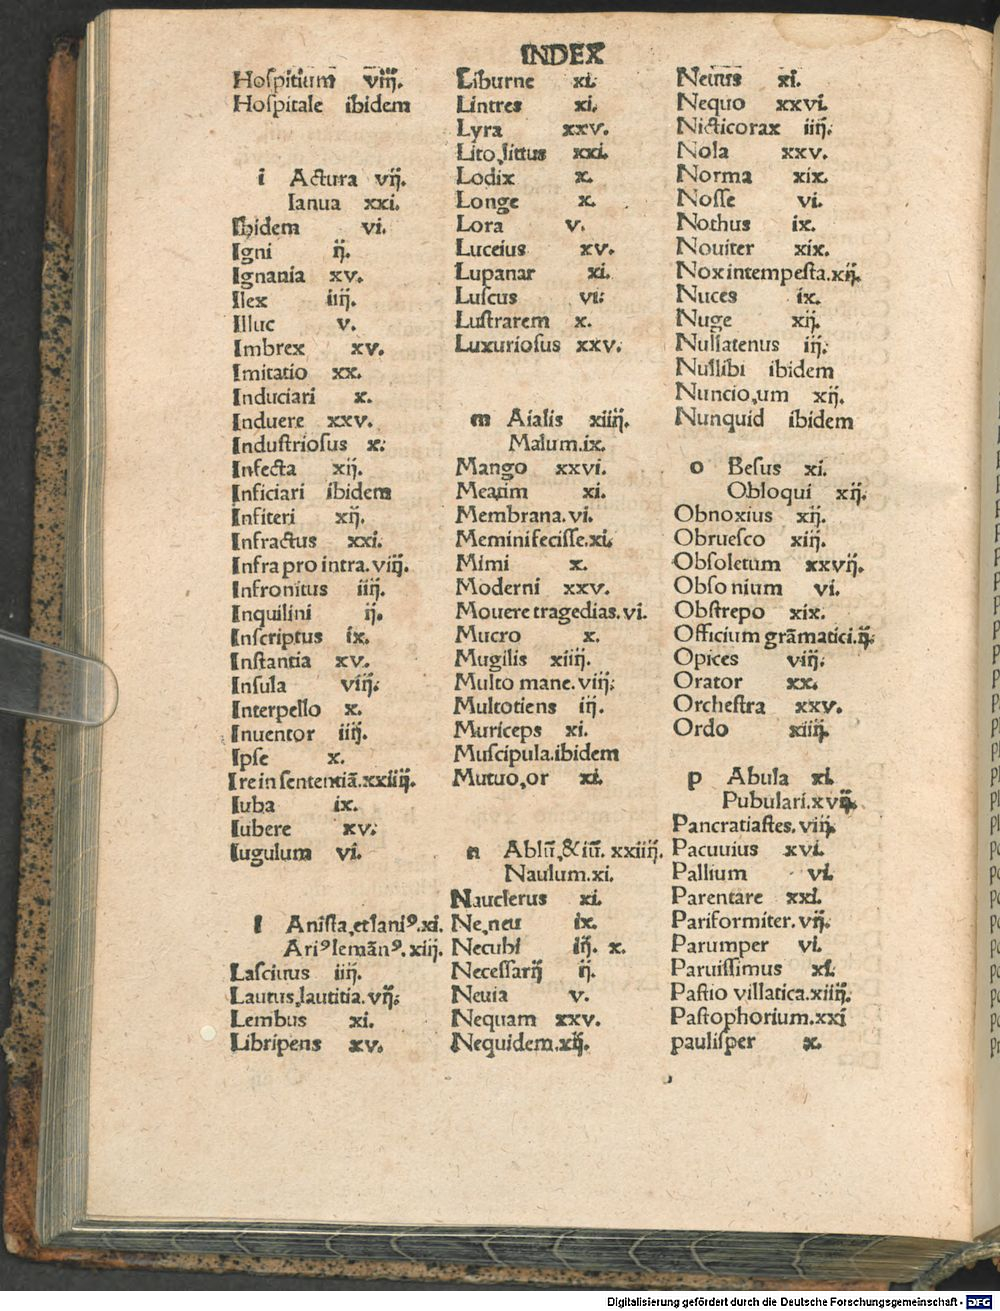 INDEX
Hoſpitium viij.
Hoſpitale ibidem
i Actura vij.
Ianua xxi.
Ibidem vi.
Igni ij.
Ignania xv.
Ilex iiij.
Illuc v.
Imbrex xv.
Imitatio xx.
Induciari x.
Induere xxv.
Induſtrioſus x.
Infecta xij.
Inficiari ibidem
Infiteri xij.
Infractus xxi.
Infra pro intra. viij.
Infronitus iiij.
Inquilini ij.
Inſcriptus ix.
Inſtantia xv.
Inſula viij.
Interpello x.
Inuentor iiij.
Ipſe x.
Ire in ſententiā. xxiiij.
Iuba ix.
Iubere xv.
Iugulum vi.
l Aniſta, et laniꝰ. xi.
Ariꝰ lemānꝰ. xiij.
Laſciuus iiij.
Lautus, lautitia. vij.
Lembus xi.
Libripens xv.
Liburne xi.
Lintres xi.
Lyra xxv.
Lito, littus xxi.
Lodix x.
Longe x.
Lora v.
Luceius xv.
Lupanar xi.
Luſcus vi.
Luſtrarem x.
Luxurioſus xxv.
m Aialis xiiij.
Malum. ix.
Mango xxvi.
Meatim xi.
Membrana. vi.
Memini feciſſe. xi.
Mimi x.
Moderni xxv.
Mouere tragedias. vi.
Mucro x.
Mugilis xiiij.
Multo mane. viij.
Multotiens iij.
Muriceps xi.
Muſcipula. ibidem
Mutuo, or xi.
n Ablū, & iū. xxiiij.
Naulum. xi.
Nauclerus xi.
Ne, neu ix.
Necubi iij. x.
Neceſſarij ij.
Neuia v.
Nequam xxv.
Nequidem. xij.
Neuus xi.
Nequo xxvi.
Nicticorax iiij.
Nola xxv.
Norma xix.
Noſſe vi.
Nothus ix.
Nouiter xix.
Nox intempeſta. xij.
Nuces ix.
Nuge xij.
Nullatenus iij.
Nullibi ibidem
Nuncio, um xij.
Nunquid ibidem
o Beſus xi.
Obloqui xij.
Obnoxius xij.
Obrueſco xiij.
Obſoletum xxvij.
Obſonium vi.
Obſtrepo xix.
Officium grāmatici. ij.
Opices viij.
Orator xx.
Orcheſtra xxv.
Ordo xiiij.
p Abula xi.
Pubulari. xvij.
Pancratiaſtes. viij.
Pacuuius xvi.
Pallium vi.
Parentare xxi.
Pariformiter. vij.
Parumper vi.
Paruiſſimus xi.
Paſtio villatica. xiiij.
Paſtophorium. xxi
pauliſper x.
Digitalisierung gefördert durch die Deutsche Forschungsgemeinschaft - DFG